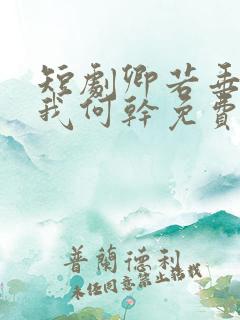 短劇卿若無
我何幹免費
普蘭德利
未经同意禁止搭载